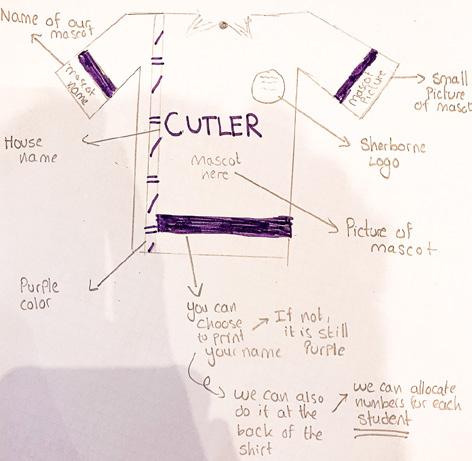 Name of our
mascot
mascot
name
mascot
Picture
small
Picture
of mascot
House
name
CUTLER
Mascot
here
Sherborne
Logo
Picture of
mascot
Purple
color
you can
choose
to print
your name
If not,
it is still
Purple
we can also
do it at the
back of the
shirt
we can allocate
numbers for each
student